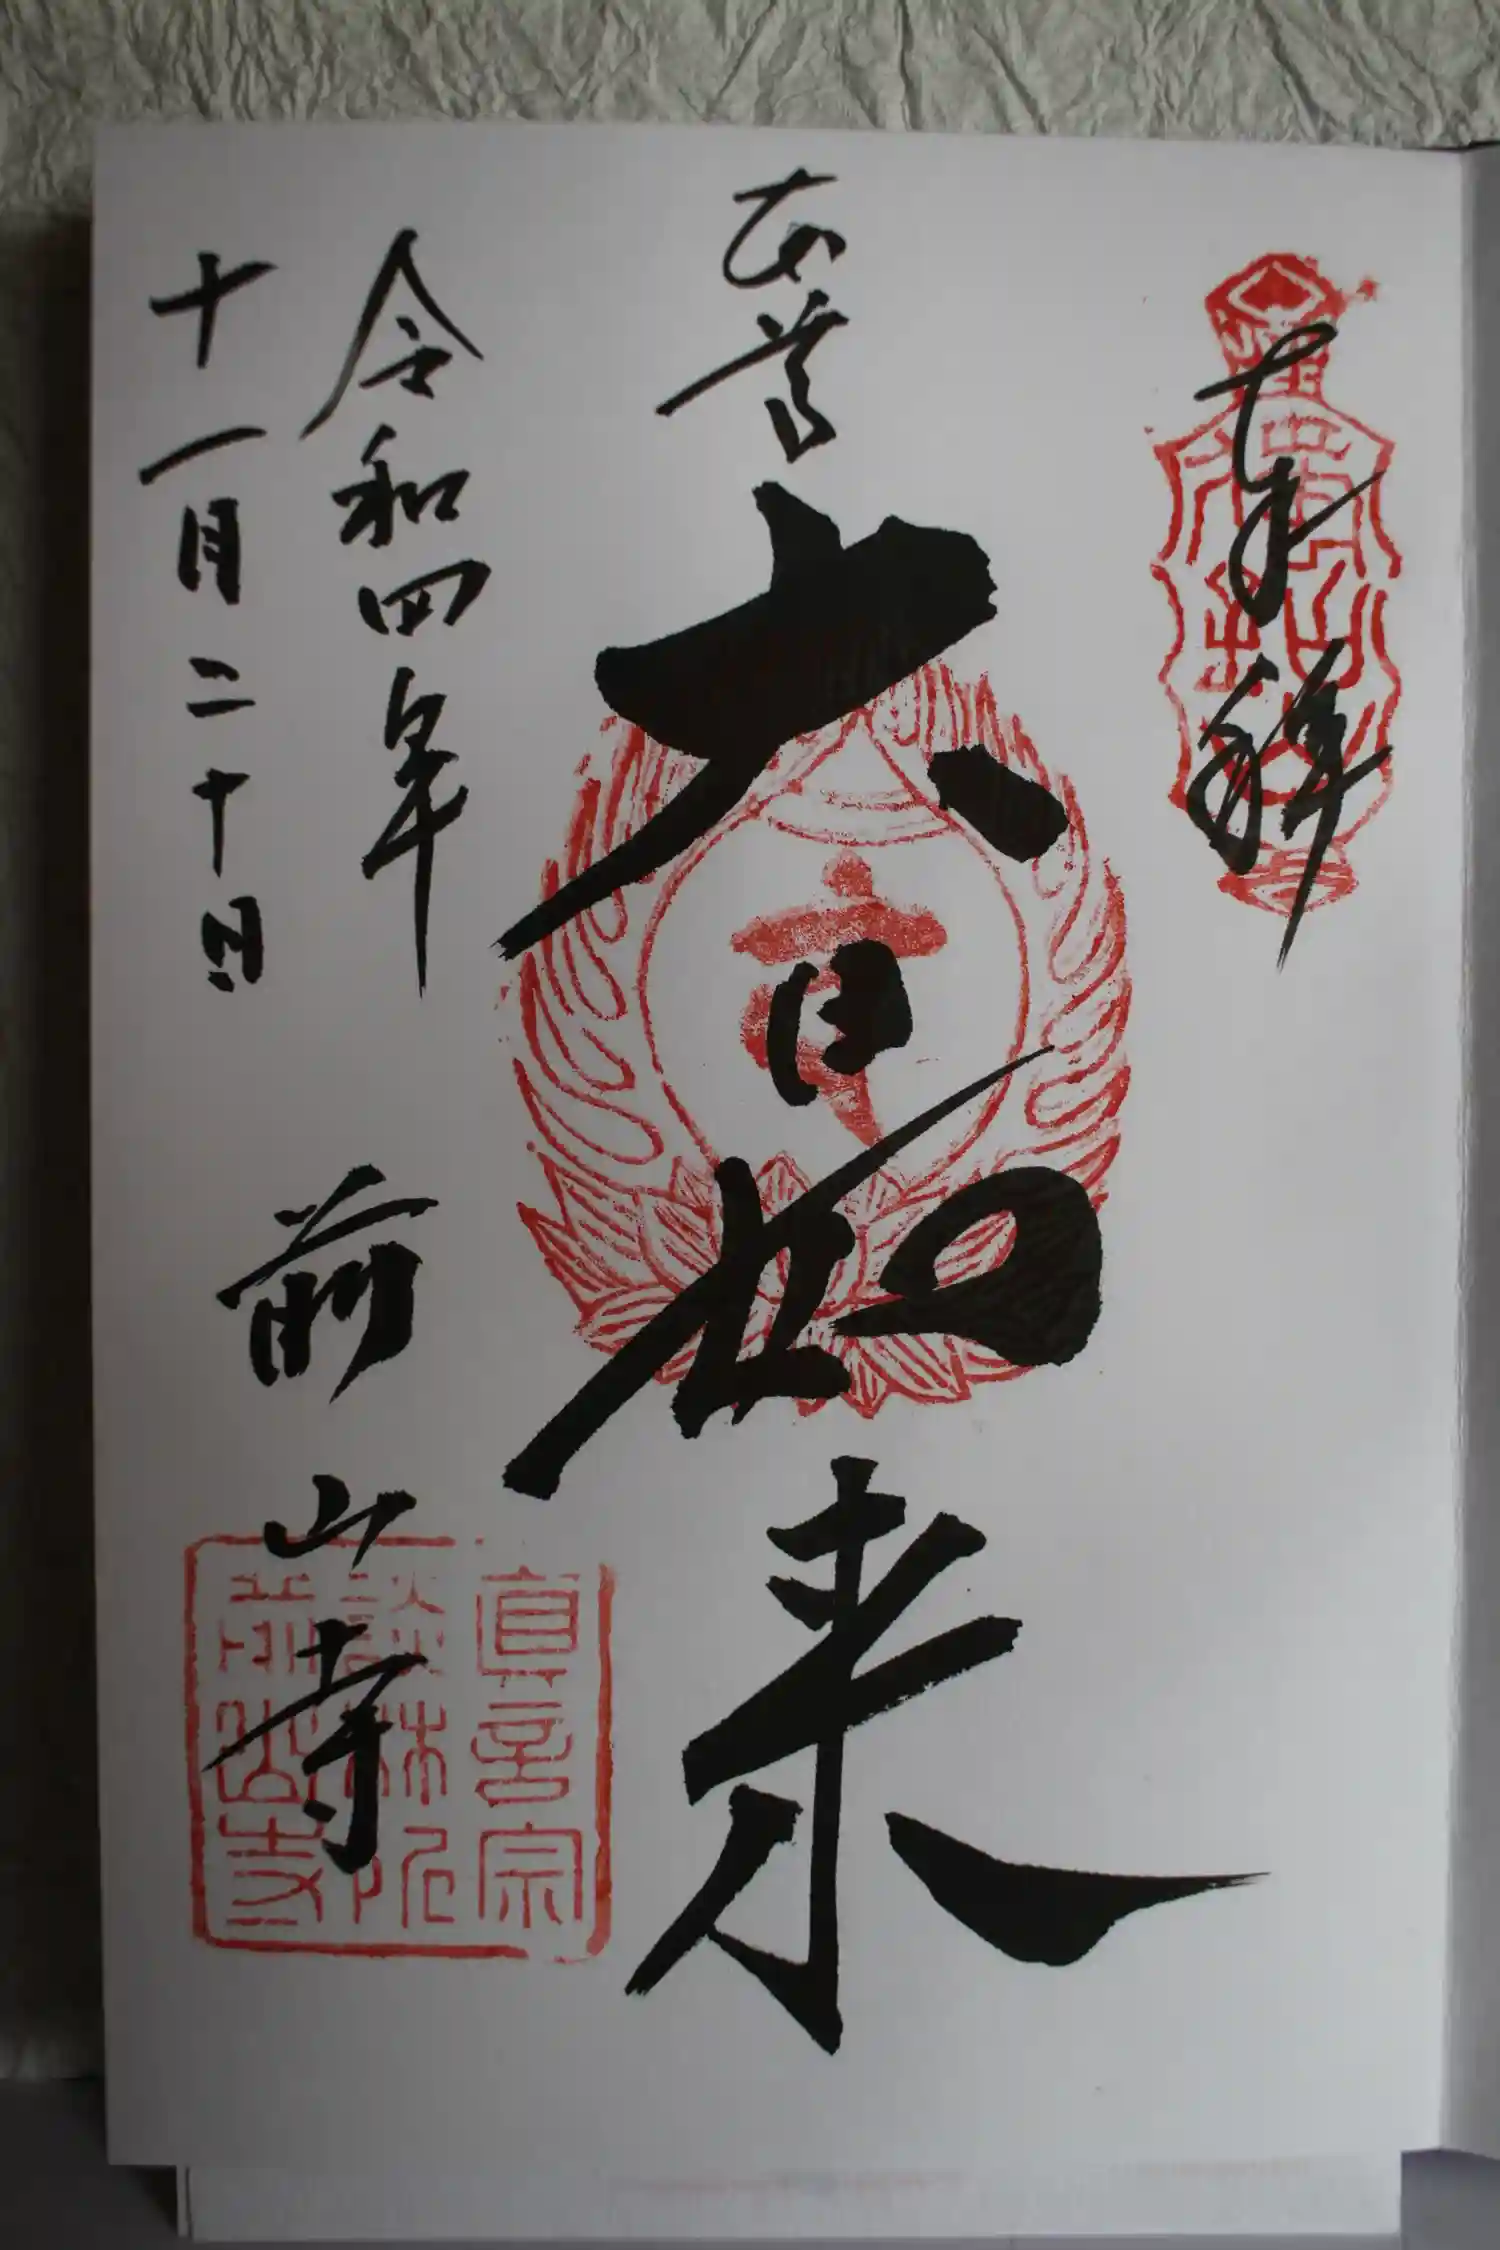 奉拝
本尊
大日如来
令和四年
十一月二十日
前山寺
真言宗
談林院
前山寺